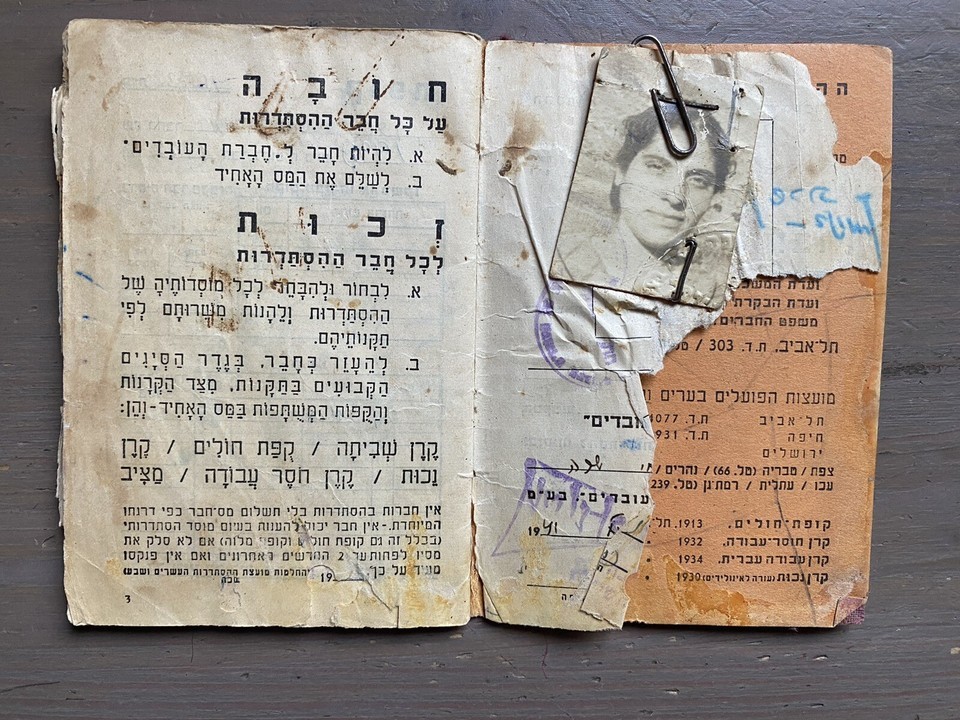 חוֹבָה
עַל כָּל חֲבֵר הַהִסְתַּדְּרוּת
א. לִהְיוֹת חָבֵר לְ„חֶבְרַת הָעוֹבְדִים"
ב. לְשַׁלֵּם אֶת הַמַּס הָאָחִיד
זְכוּת
לְכָל חֲבֵר הַהִסְתַּדְּרוּת
א. לִבְחוֹר וּלְהִבָּחֵר לְכָל מוֹסְדוֹתֶיהָ שֶׁל
הַהִסְתַּדְּרוּת וְלֵהָנוֹת מִשֵּׁרוּתָם לְפִי
תַּקָּנוֹתֵיהֶם.
ב. לְהֵעָזֵר כְּחָבֵר, בְּגֶדֶר הַסְּיָגִים
הַקְּבוּעִים בַּתַּקָּנוֹת, מִצַּד הַקְּרָנוֹת
וְהַקֻּפּוֹת הַמְשֻׁתָּפוֹת בַּמַּס הָאָחִיד-וְהֵן:
קֶרֶן שְׁבִיתָה / קֻפַּת חוֹלִים / קֶרֶן
נָכוּת / קֶרֶן חֹסֶר עֲבוֹדָה / מַצִּיב
אין חברות בהסתדרות בלי תשלום מס-חבר כפי דרגתו
המיוחדת.-אין חבר יכול להענות בשום מוסד הסתדרותי
(בכלל זה גם קופת חולים וקופת מלוה) אם לא סלק את
מסיו לפחות עד 2 החדשים האחרונים ואם אין פנקסו
מעיד על כך.
(החלטות מועצת ההסתדרות העשרים ושבע)
3
ועדת הבקרת
משפט החברים
תל־אביב, ת.ד. 303 /
מועצות הפועלים בערים
תל־אביב ת.ד. 1077
חיפה ת.ד. 931
ירושלים
צפת / טבריה (טל. 66) / נהרים /
עכו / עתלית / רמת־גן (טל. 239
ובדים"
שרה
עובדים" בע״מ
1941
קופת־חולים. 1913
קרן חוסר־עבודה. 1932
קרן עבודה עברית. 1934
קרן נכות (עזרה לאינולידים) 1930